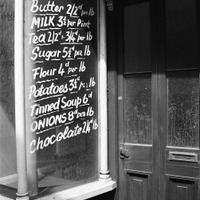 Butter 2/2 per lb
MILK 3d per Pint
Tea 2/2d - 3/4d per lb
Sugar 5d per lb
Flour 4d per lb
Potatoes 3d per lb
Tinned Soup 6d
ONIONS 8d per lb
Chocolate 2/4 lb